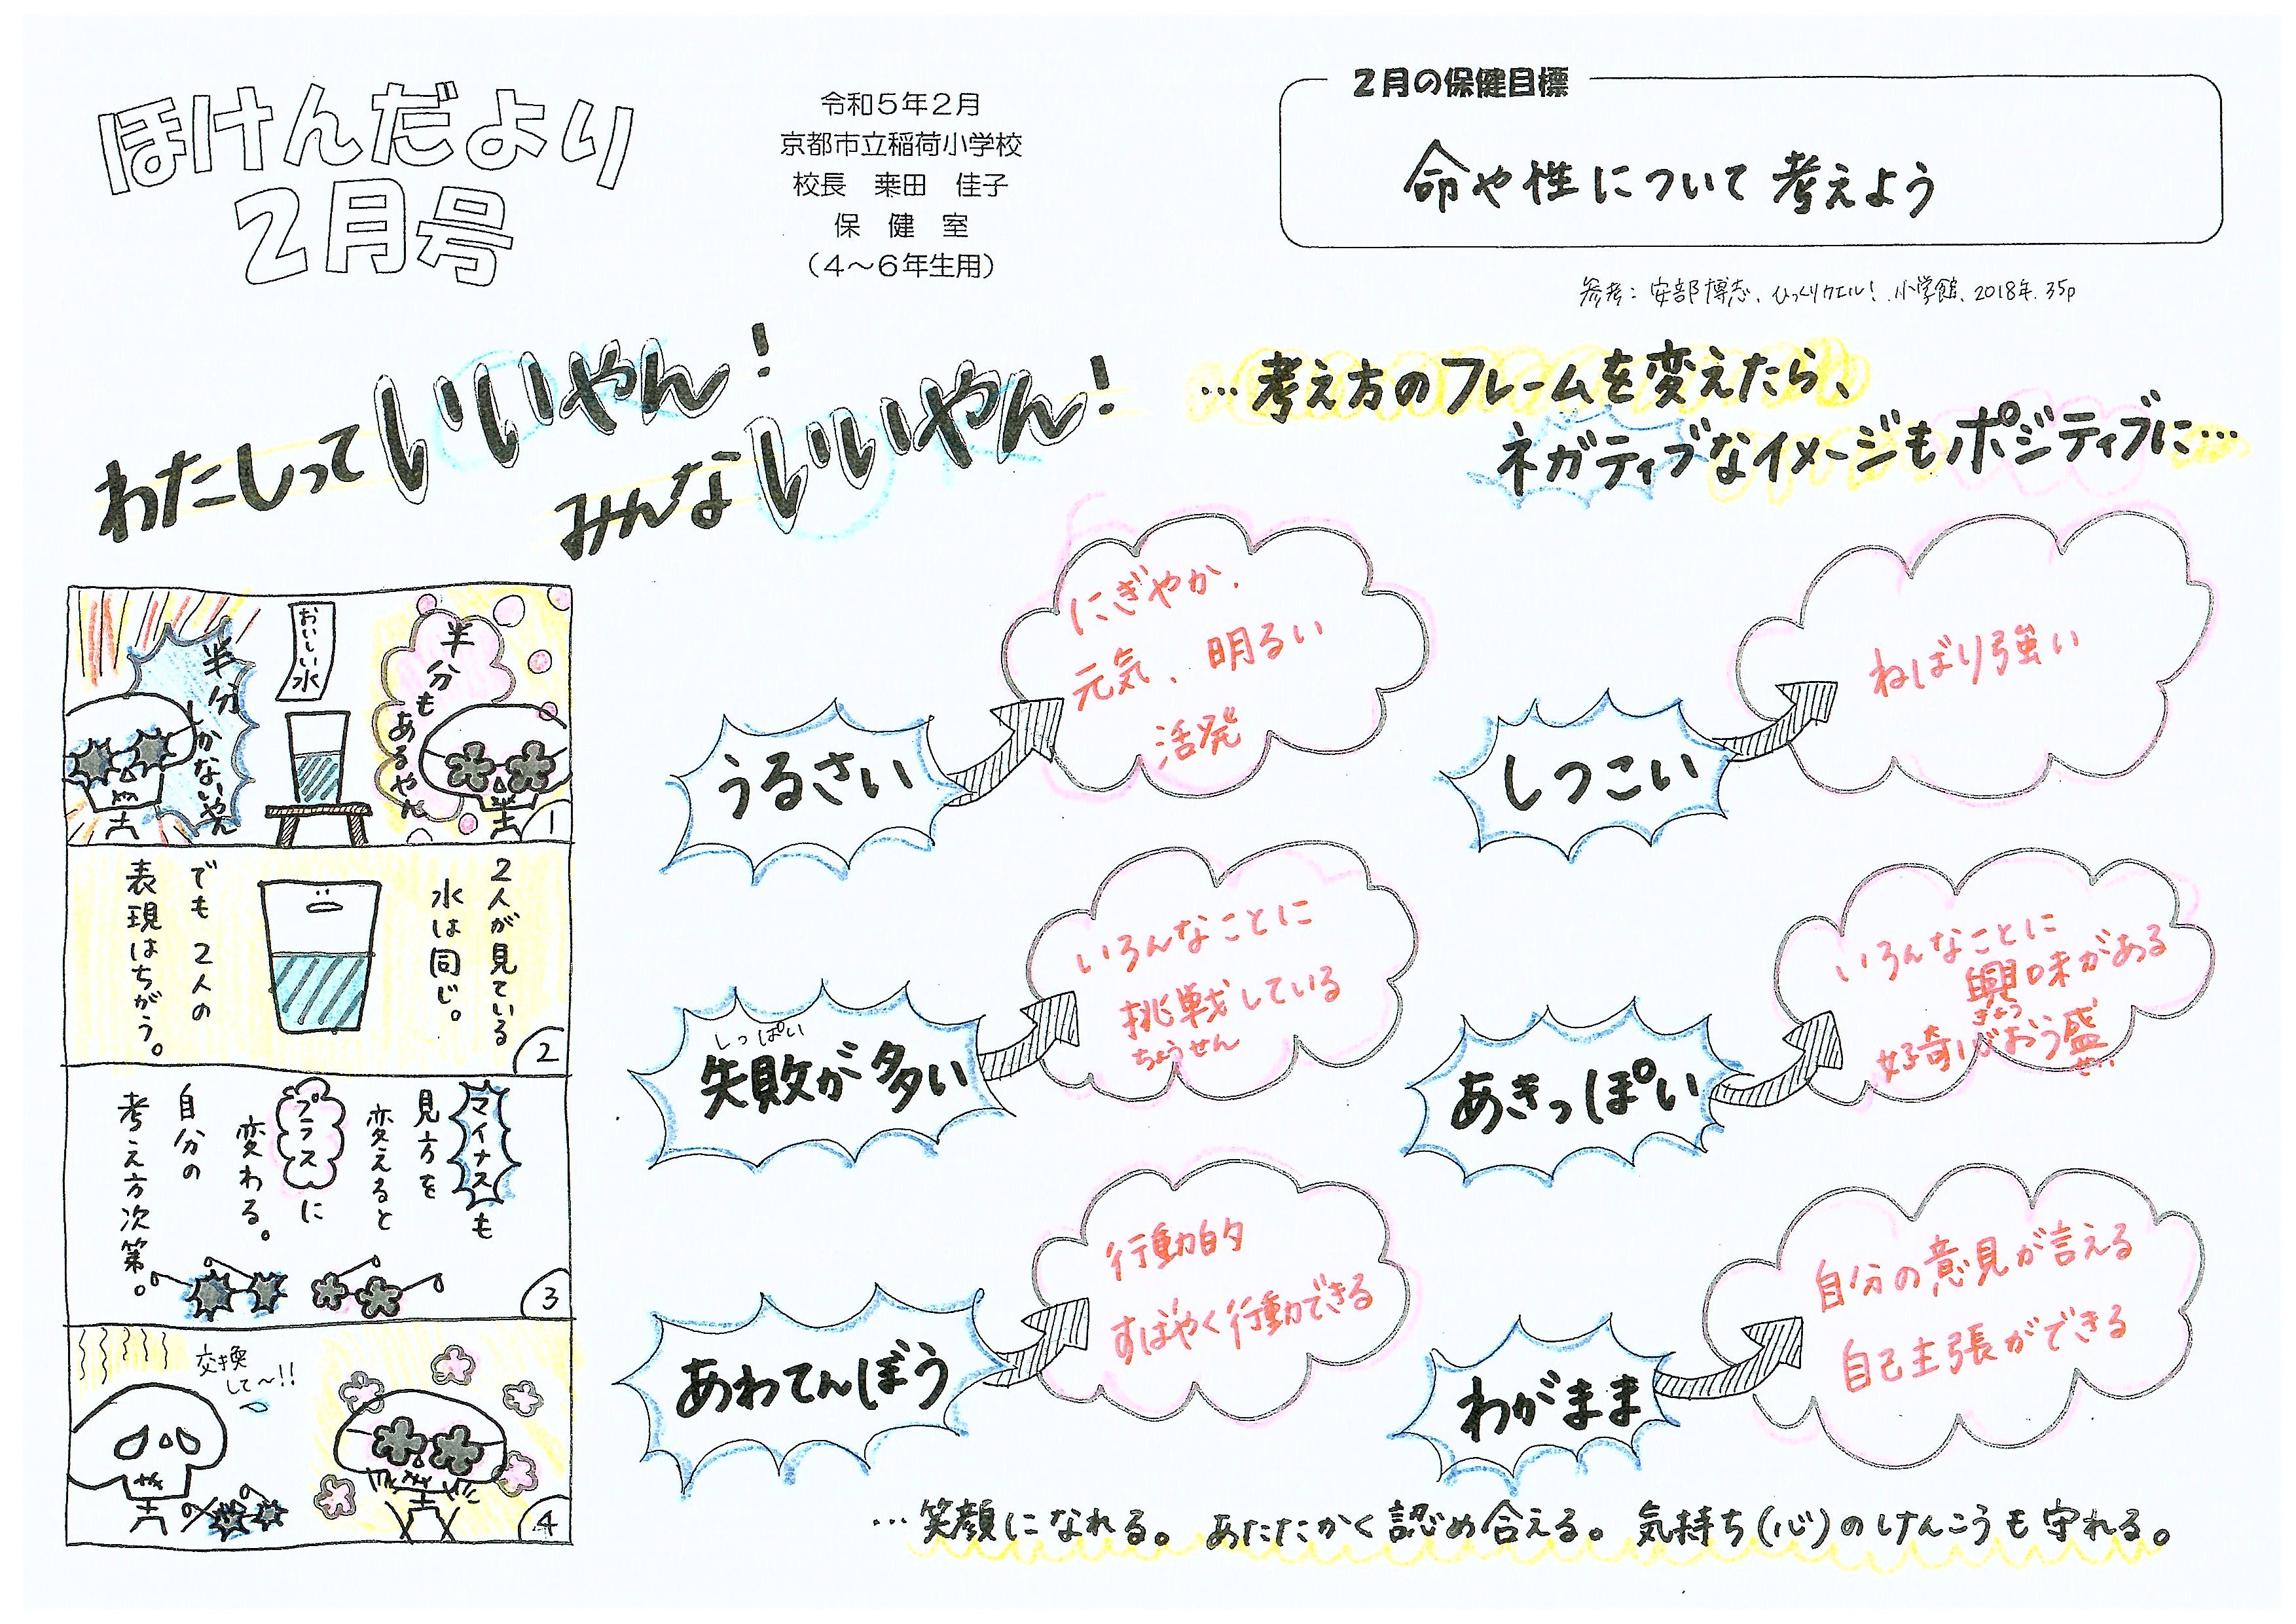 ほけんだより
2月号
令和5年2月
京都市立稲荷小学校
校長　桒田　佳子
保　健　室
（4～6年生用）
2月の保健目標
命や性について考えよう
参考：安部博志、ひっくりカエル！、小学館、2018年、35p
わたしっていいやん！
みんないいやん！
…考え方のフレームを変えたら、
ネガティブなイメージもポジティブに…
おいしい水
半分もあるやん
半分しかないやん
1
2人が見ている
水は同じ。
でも2人の
表現はちがう。
2
マイナスも
見方を
変えると
プラスに
変わる。
自分の
考え方次第。
3
交換
して～!!
4
うるさい
にぎやか、
元気、明るい
活発
しつこい
ねばり強い
しっぱい
失敗が多い
いろんなことに
挑戦している
ちょうせん
あきっぽい
いろんなことに
興味がある
きょう
好奇心おう盛
せい
あわてんぼう
行動的
すばやく行動できる
わがまま
自分の意見が言える
自己主張ができる
…笑顔になれる。あたたかく認め合える。気持ち(心)のけんこうも守れる。